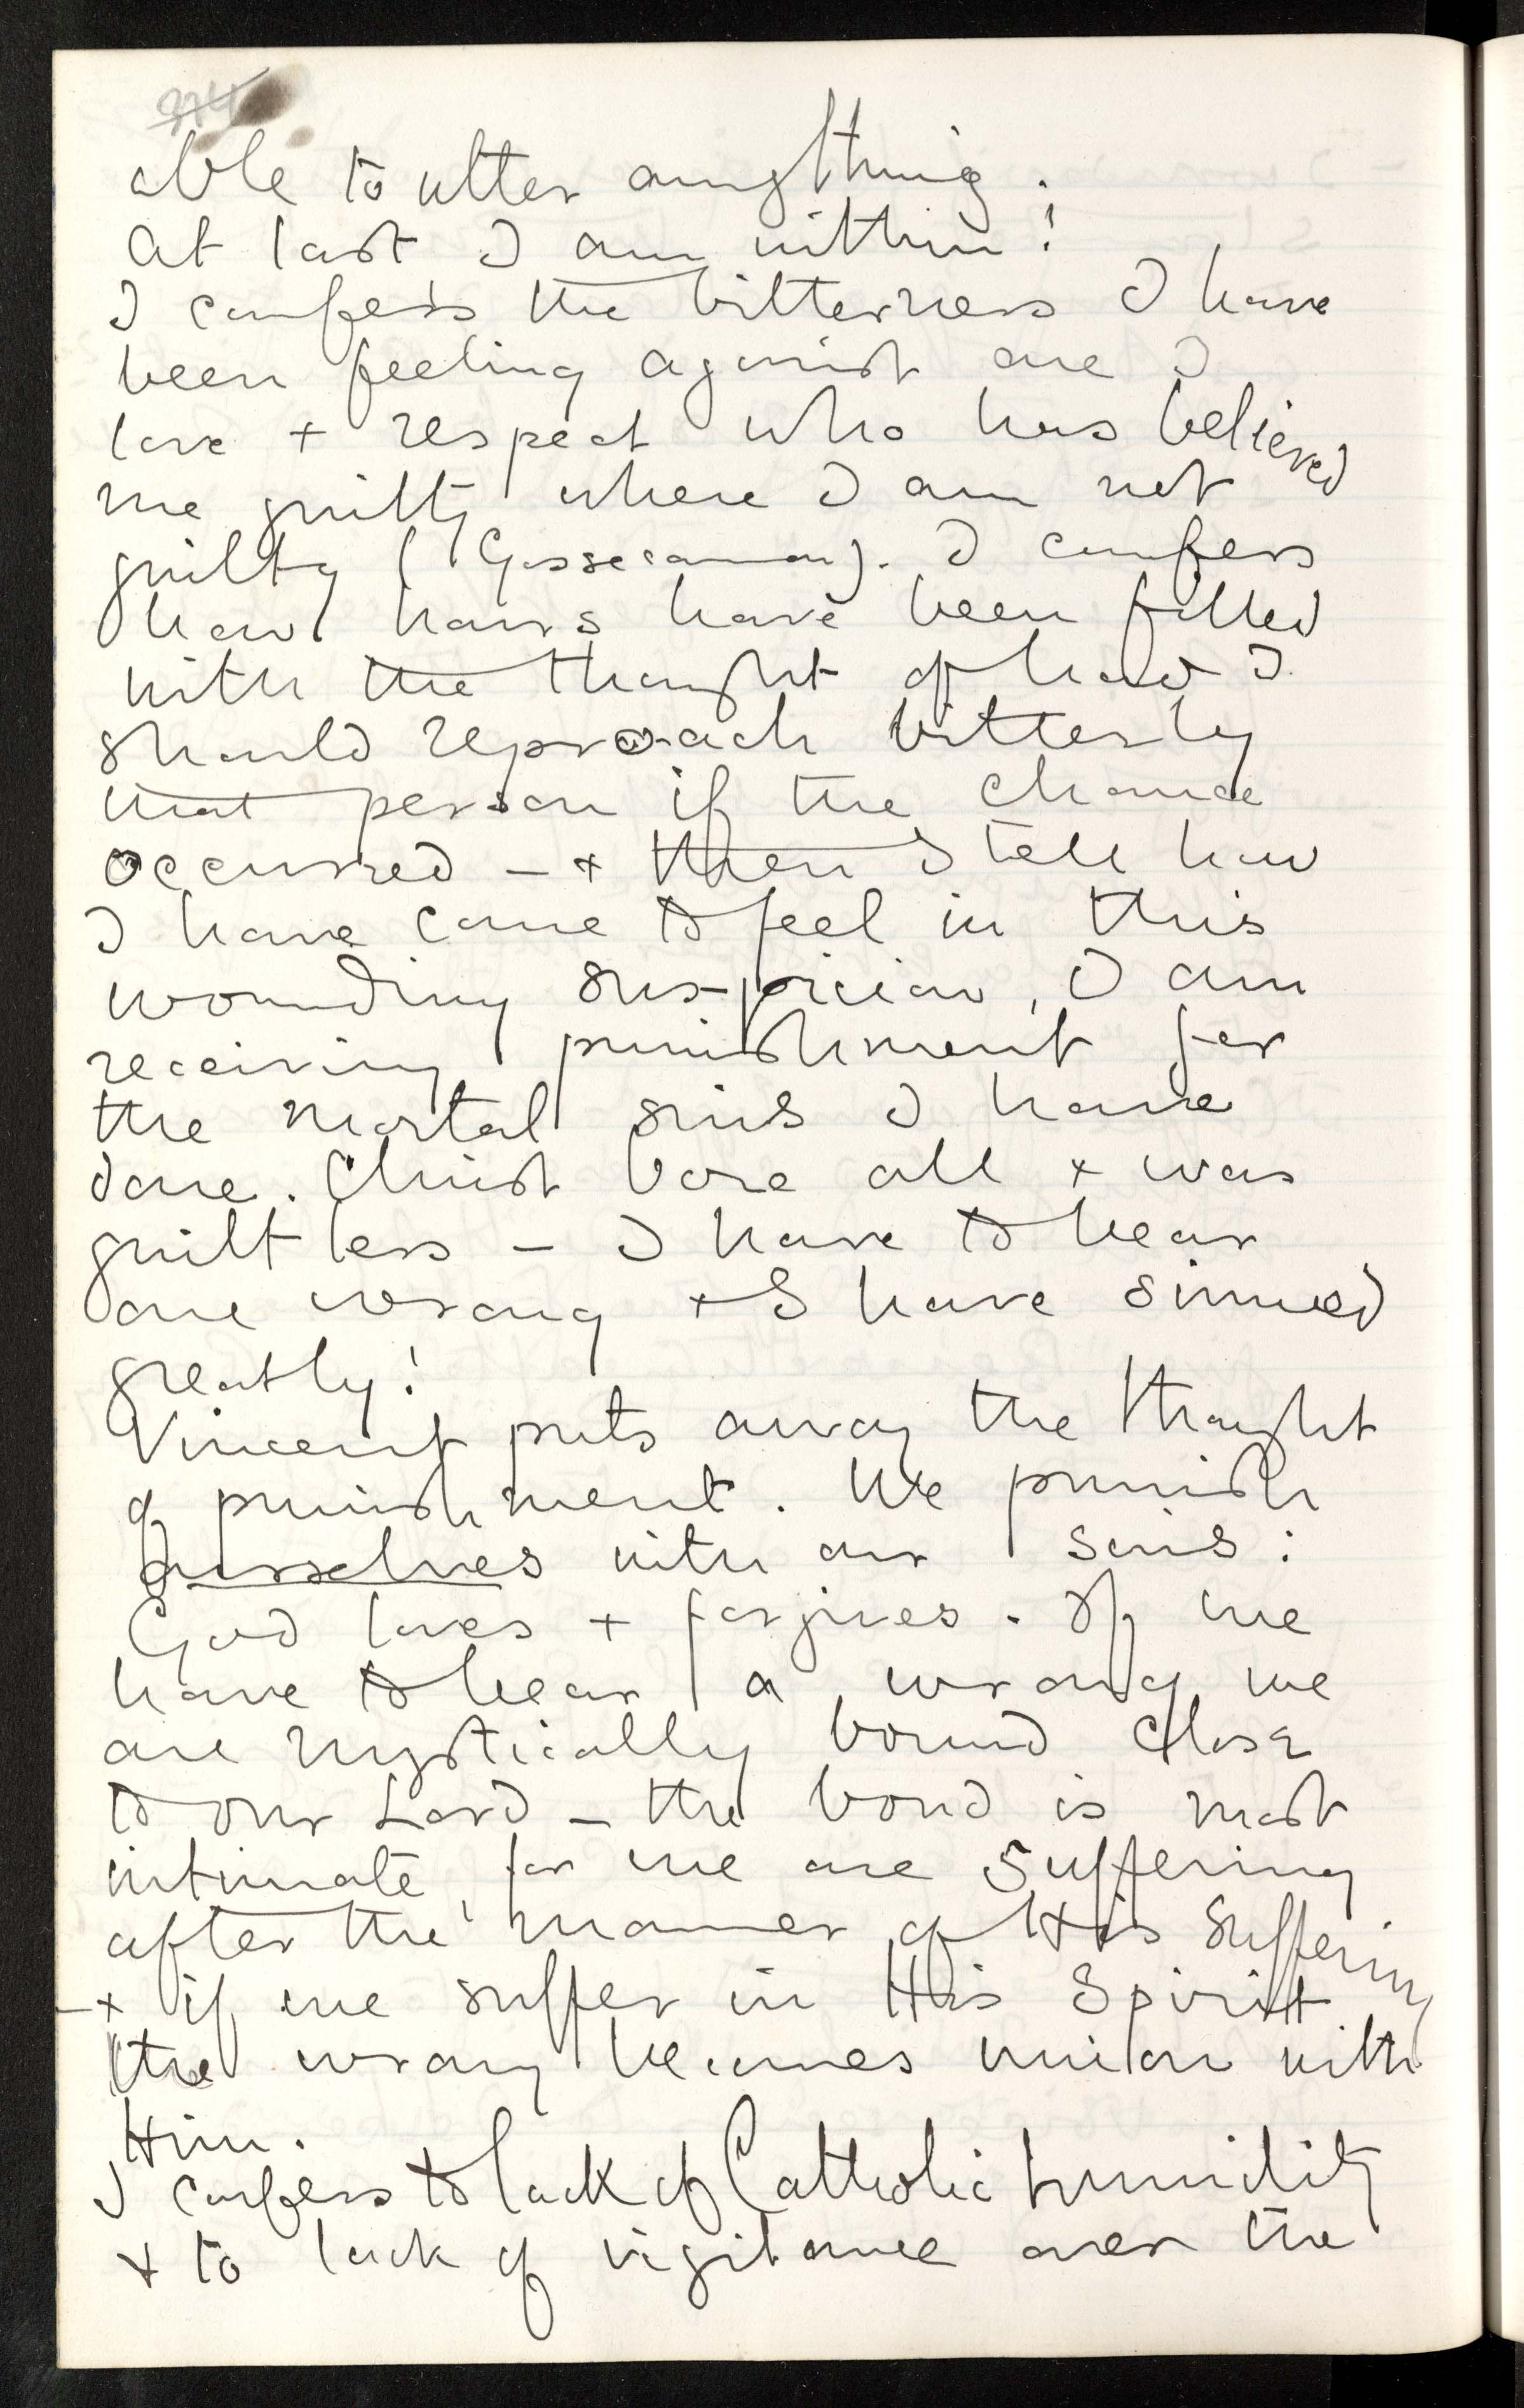 able to utter anything.
At last I am within!
I confess the bitterness I have
been feeling against one I
love + respect who has believed
me guilty where I am not
guilty (Gosscannon). I confess
how hours have been filled
with the thought of how I
should reproach bitterly
that person if the chance
occurred – + then I tell how
I have come to feel in this
wounding suspicion, I am
receiving punishment for
the mortal sins I have
done. Christ bore all + was
guiltless – I have to bear
one wrong + I have sinned
greatly!
Vincent puts away the thought
of punishment. We punish
ourselves with our sins:
God loves + forgives. If we
have to bear a wrong we
are mystically bound close
to our Lord – the bond is most
intimate, for we are suffering
after the manner of His suffering
– + if we suffer in His Spirit
the wrong becomes union with
Him.
I confess to lack of Catholic humility
+ to lack of vigilance over the